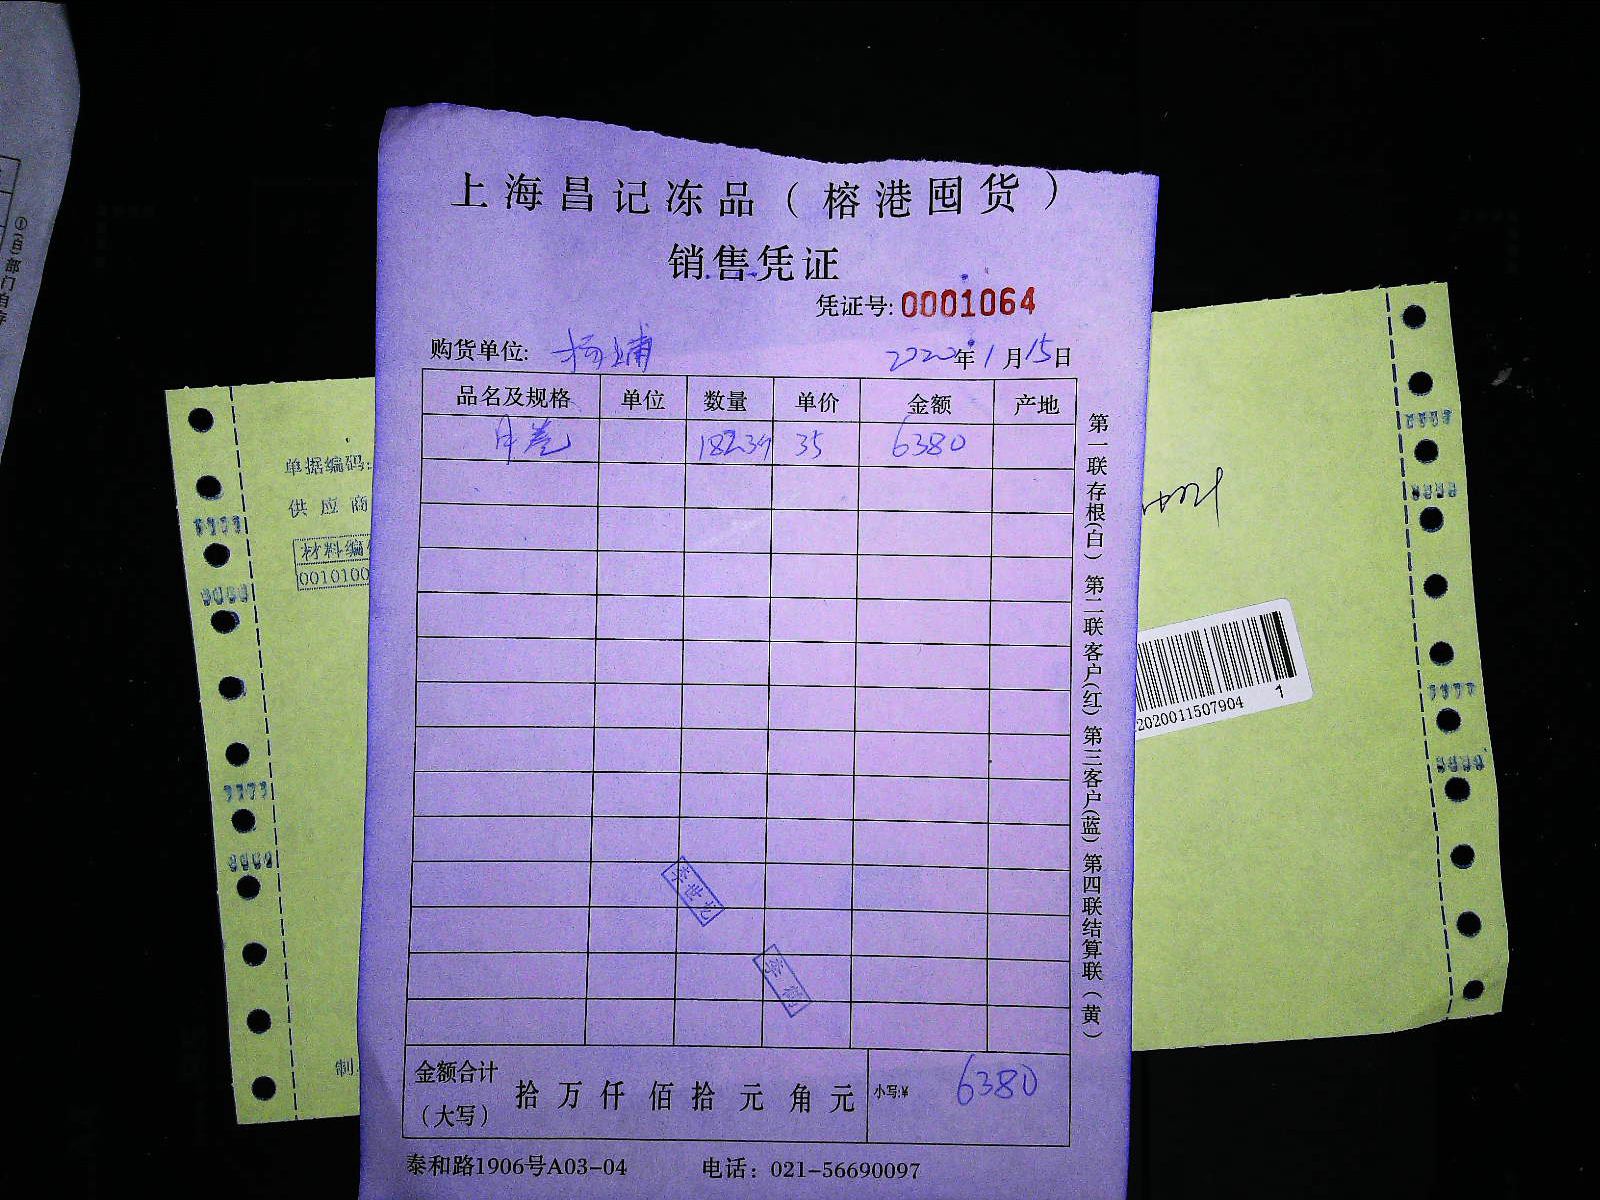 上海昌记冻品（榕港囤货）
销售凭证
凭证号: 0001064
购货单位: 杨埔 2020年1月15日
品名及规格 单位 数量 单价 金额 产地
35 6380
金额合计（大写） 拾 万 仟 佰 拾 元 角 元 小写:¥ 6380
泰和路1906号A03-04 电话：021-56690097
第一联存根(白) 第二联客户(红) 第三客户(蓝) 第四联结算联(黄)
单据编码:
供应商
材料编
0010100
制
2020011507904
1
①(白)部门自存